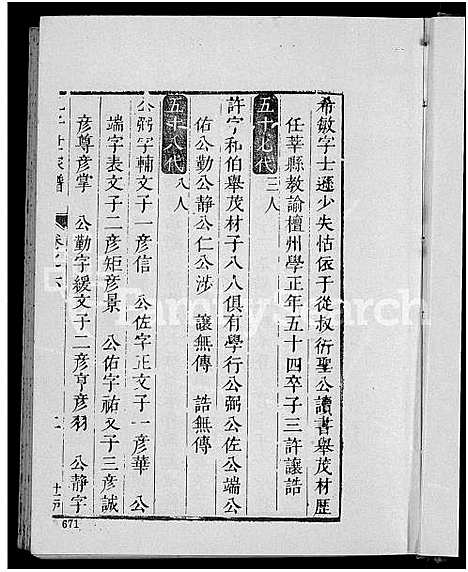 希敏字士遜少失怙依于從叔衍聖公讀書舉茂材歷
任莘縣教諭檀州學正年五十四卒子三許讓誥
五十七代三人
許字和伯舉茂材子八人俱有學行公弼公佐公端公
佑公勤公靜公仁公涉 讓無傳 誥無傳
五十八代八人
公弼字輔文子一彥信 公佐字正文子一彥華 公
端字表文子二彥矩彥景 公佑字祐文子三彥誠
彥尊彥掌 公勤字緩文子二彥亨彥羽 公靜字
世家譜 卷之六
671